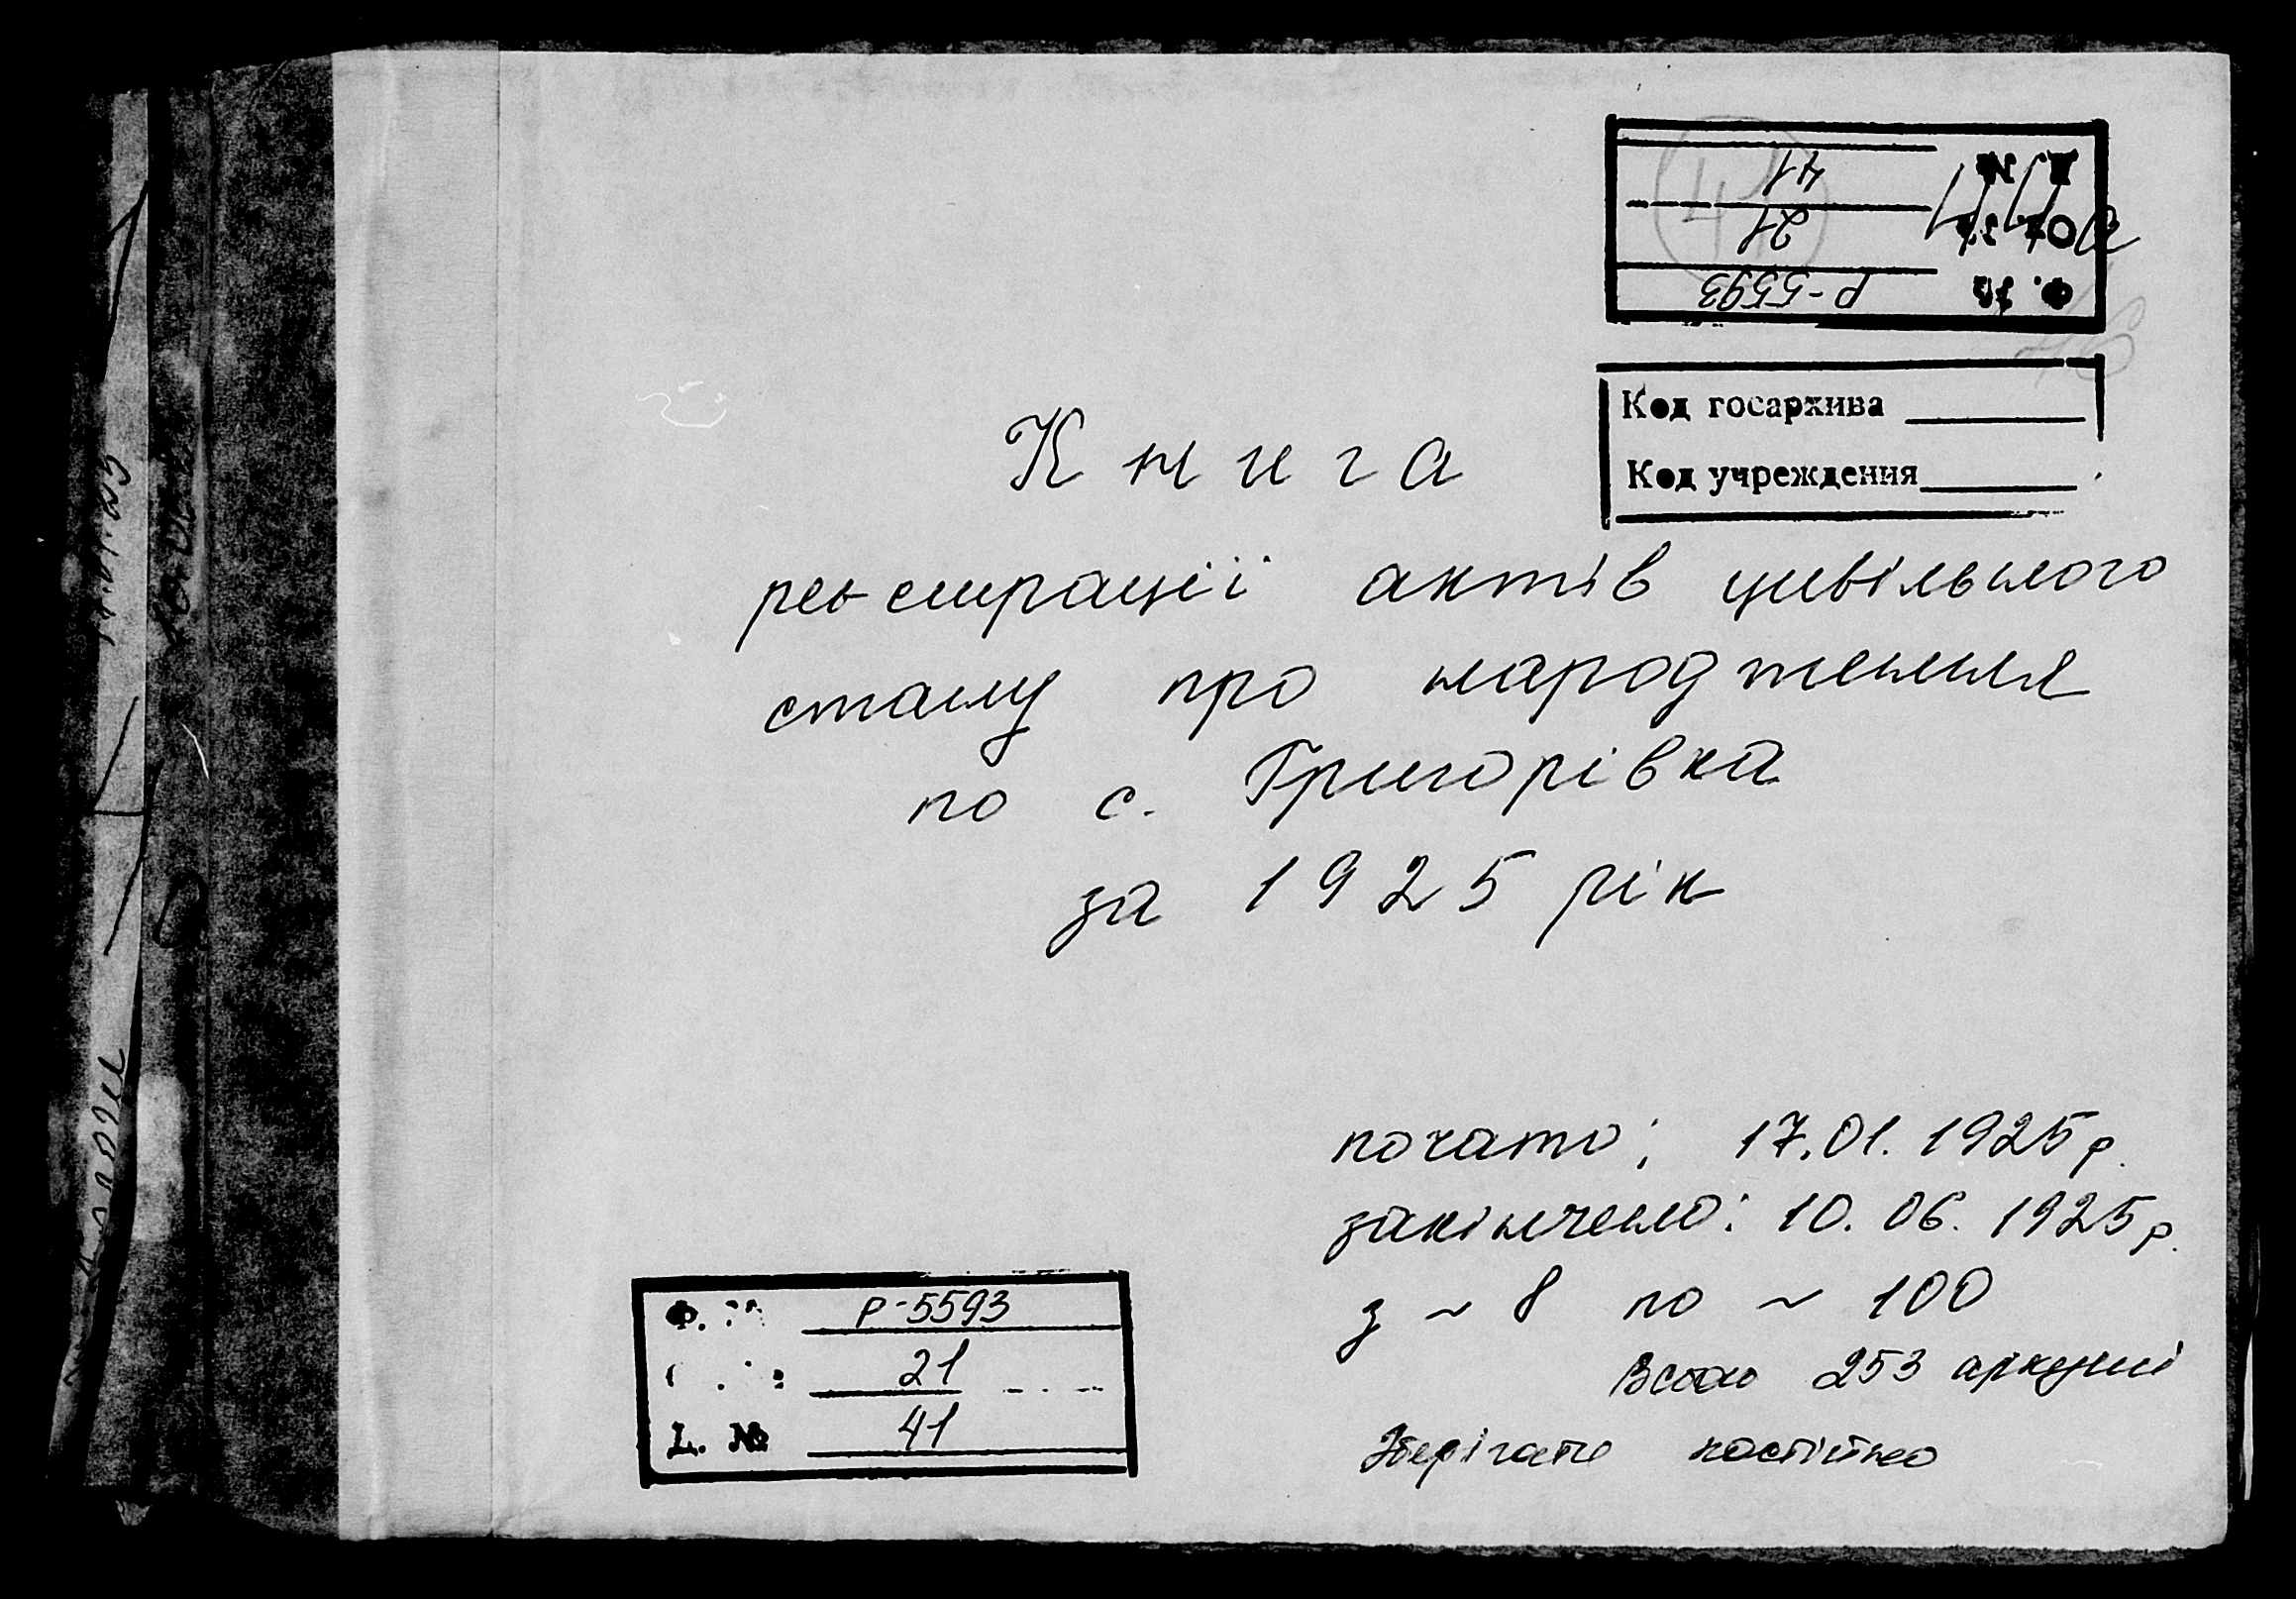 Д. №
41
21
Ф. №
Р-5593
Код госархива
Код учреждения
Книга
реєстрації актів цивільного
стану про народження
по с. Григорівка
за 1925 рік
почато: 17.01.1925 р.
закінчено: 10.06.1925 р.
з ~ 8 по ~ 100
Всього 253 аркуші
Зберігати постійно
Ф. Р-5593
21
Д. № 41